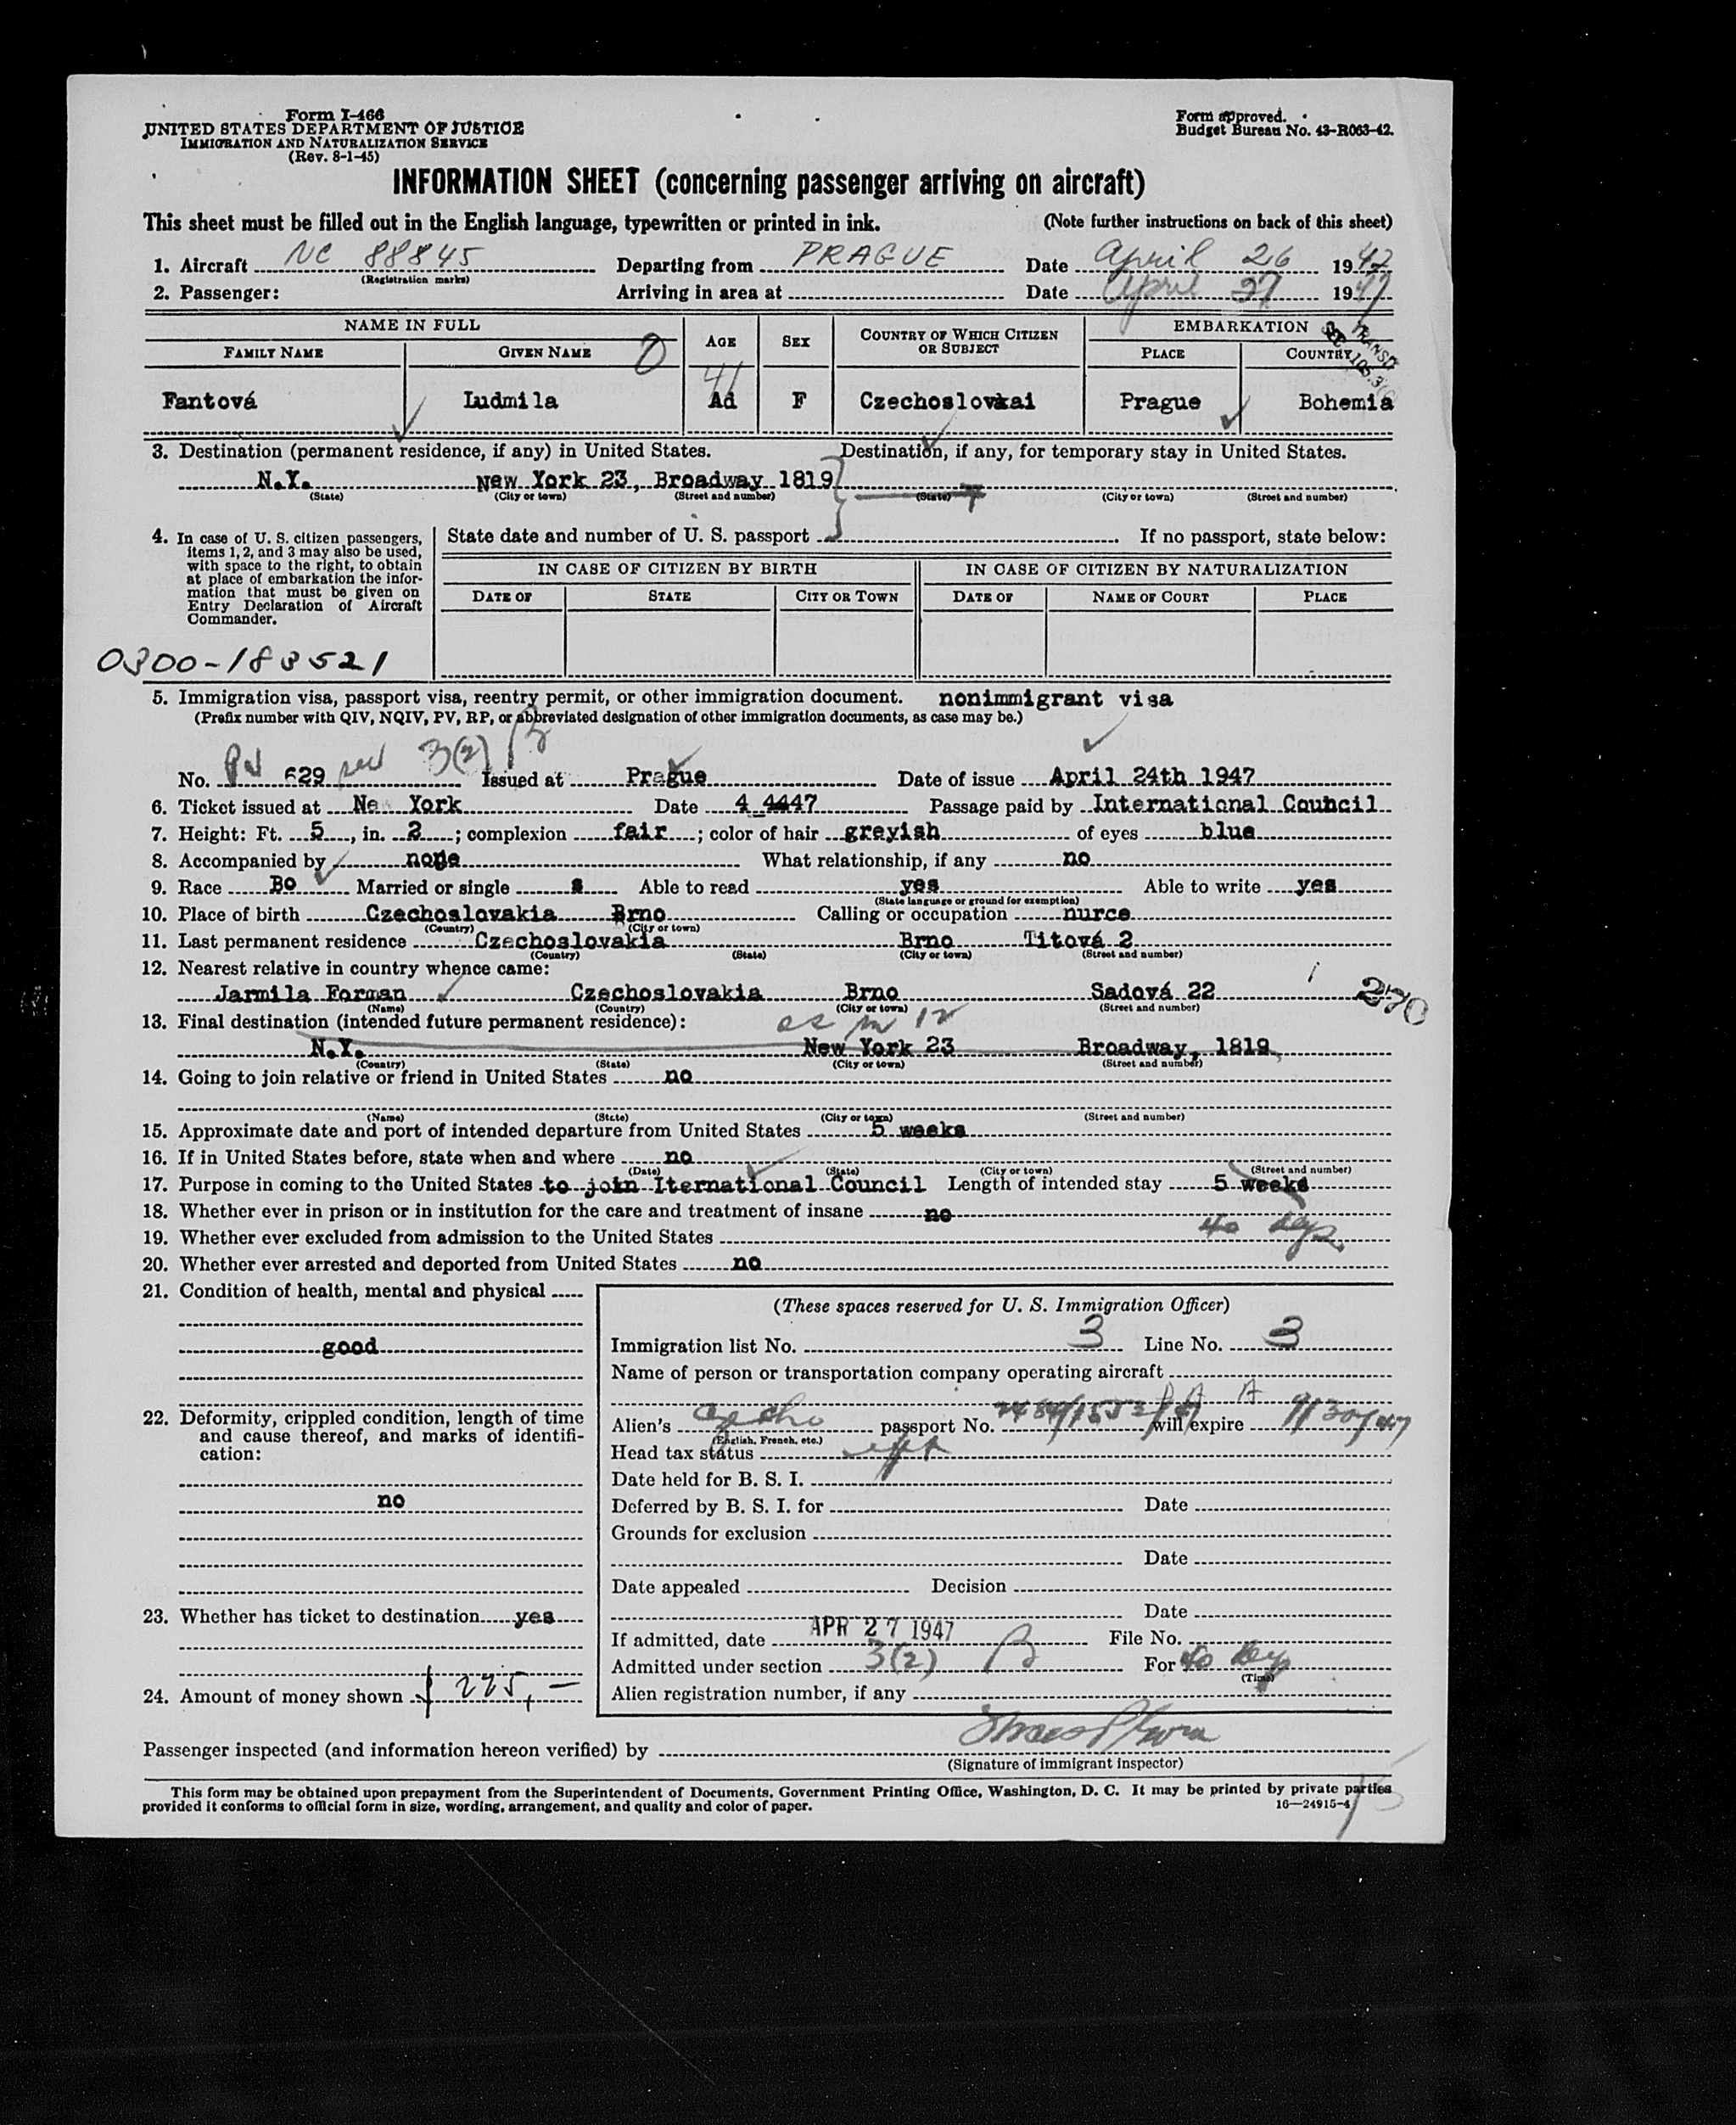 Form I-466
UNITED STATES DEPARTMENT OF JUSTICE
IMMIGRATION AND NATURALIZATION SERVICE
(Rev. 8-1-45)
Form approved.
Budget Bureau No. 43-R063-42.
INFORMATION SHEET (concerning passenger arriving on aircraft)
This sheet must be filled out in the English language, typewritten or printed in ink. (Note further instructions on back of this sheet)
1. Aircraft NC 88845 Departing from PRAGUE Date April 26 1947
(Registration marks)
2. Passenger: Arriving in area at Date April 27 1947
NAME IN FULL AGE SEX COUNTRY OF WHICH CITIZEN OR SUBJECT EMBARKATION
FAMILY NAME GIVEN NAME 0 PLACE COUNTRY
41
Fantová Ludmila Ad F Czechoslovakai Prague Bohemia
3. Destination (permanent residence, if any) in United States. Destination, if any, for temporary stay in United States.
N.Y. New York 23, Broadway 1819
(State) (City or town) (Street and number) (State) (City or town) (Street and number)
4. In case of U. S. citizen passengers, items 1, 2, and 3 may also be used, with space to the right, to obtain at place of embarkation the information that must be given on Entry Declaration of Aircraft Commander.
State date and number of U. S. passport If no passport, state below:
IN CASE OF CITIZEN BY BIRTH IN CASE OF CITIZEN BY NATURALIZATION
DATE OF STATE CITY OR TOWN DATE OF NAME OF COURT PLACE
0300-183521
5. Immigration visa, passport visa, reentry permit, or other immigration document. nonimmigrant visa
(Prefix number with QIV, NQIV, PV, RP, or abbreviated designation of other immigration documents, as case may be.)
3(2) B
No. PV 629 Issued at Prague Date of issue April 24th 1947
6. Ticket issued at Ne York Date 4 4447 Passage paid by International Council
7. Height: Ft. 5, in. 2; complexion fair; color of hair greyish of eyes blue
8. Accompanied by none What relationship, if any no
9. Race Bo Married or single s Able to read yes Able to write yes
(State language or ground for exemption)
10. Place of birth Czechoslovakia Brno Calling or occupation nurce
(Country) (City or town)
11. Last permanent residence Czechoslovakia Brno Titová 2
(Country) (State) (City or town) (Street and number)
12. Nearest relative in country whence came:
Jarmila Forman Czechoslovakia Brno Sadová 22 270
(Name) (Country) (City or town) (Street and number)
13. Final destination (intended future permanent residence): as in 12
N.Y. New York 23 Broadway, 1819
(Country) (State) (City or town) (Street and number)
14. Going to join relative or friend in United States no
(Name) (State) (City or town) (Street and number)
15. Approximate date and port of intended departure from United States 5 weeks
16. If in United States before, state when and where no
(Date) (State) (City or town) (Street and number)
17. Purpose in coming to the United States to join Iternational Council Length of intended stay 5 weeks
18. Whether ever in prison or in institution for the care and treatment of insane no
40 days
19. Whether ever excluded from admission to the United States
20. Whether ever arrested and deported from United States no
21. Condition of health, mental and physical
good
22. Deformity, crippled condition, length of time and cause thereof, and marks of identification:
no
23. Whether has ticket to destination yes
24. Amount of money shown $ 225,—
(These spaces reserved for U. S. Immigration Officer)
Immigration list No. 3 Line No. 3
Name of person or transportation company operating aircraft
P A A
Alien's Czecho passport No. will expire 9/30/47
(English, French, etc.)
Head tax status
Date held for B. S. I.
Deferred by B. S. I. for Date
Grounds for exclusion
Date
Date appealed Decision
Date
If admitted, date APR 27 1947 File No.
Admitted under section 3(2) B For 40 days
(Time)
Alien registration number, if any
Passenger inspected (and information hereon verified) by
(Signature of immigrant inspector)
This form may be obtained upon prepayment from the Superintendent of Documents, Government Printing Office, Washington, D. C. It may be printed by private parties
provided it conforms to official form in size, wording, arrangement, and quality and color of paper. 16—24915-4